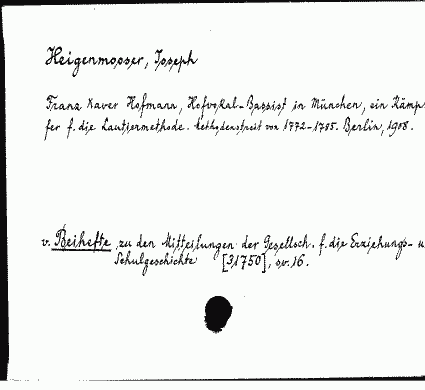 Heigenmooser, Joseph
Franz Xaver Hofmann, Hofvokal-Bassist in München, ein Kämp-
fer f. die Lautiermethode. Methodenstreit von 1772-1785. Berlin, 1908.
v. Beihefte zu den Mitteilungen der Gesellsch. f. die Erziehungs- u
Schulgeschichte [31750], sv. 16.